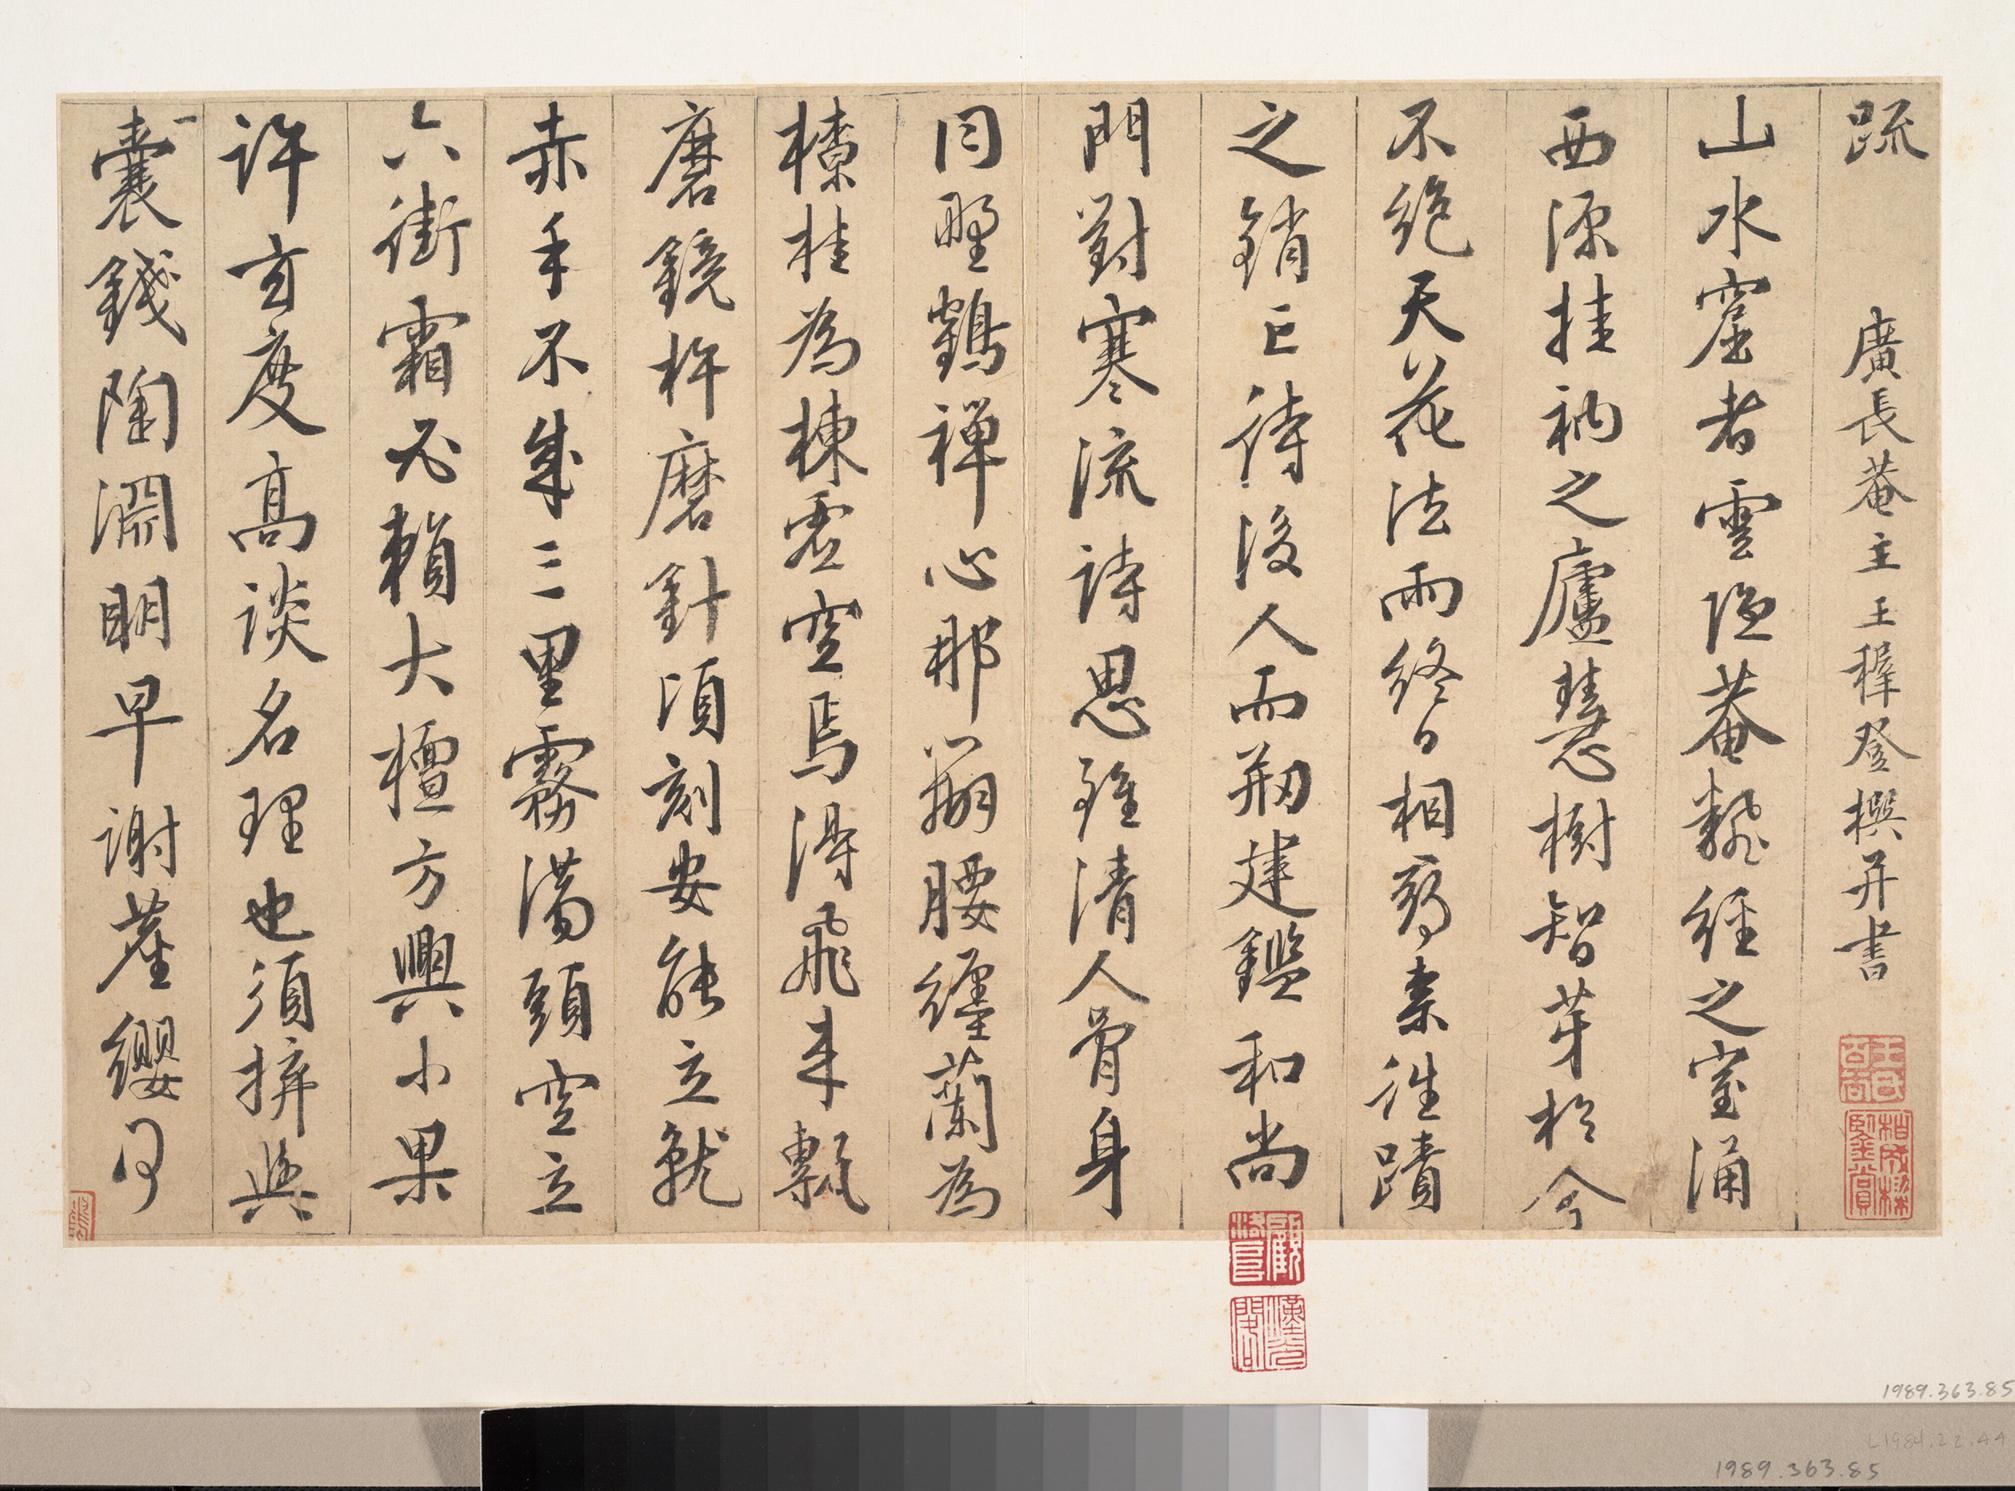 疏 廣長菴主王穉登撰并書
山水窟者雲隱菴繙經之室涌
西源挂衲之廬慧樹智芽於今
不絕天花法雨終日相尋素法蹟
之銷亡待後人而刱建鑑和尚
門對寒流詩思雖清人骨身
同野鶴禪心那嬭腰纏蘭為
橑桂為棟雲空焉得飛來甎
磨鏡杵磨針頃刻安能立就
赤手不成三里霧蕩頭空立
六街霜必賴大檀方興小果
許玄度高談名理也須拚與
一囊錢陶淵明早謝塵纓何
1989.363.85
L1984.22.44
1989.363.85